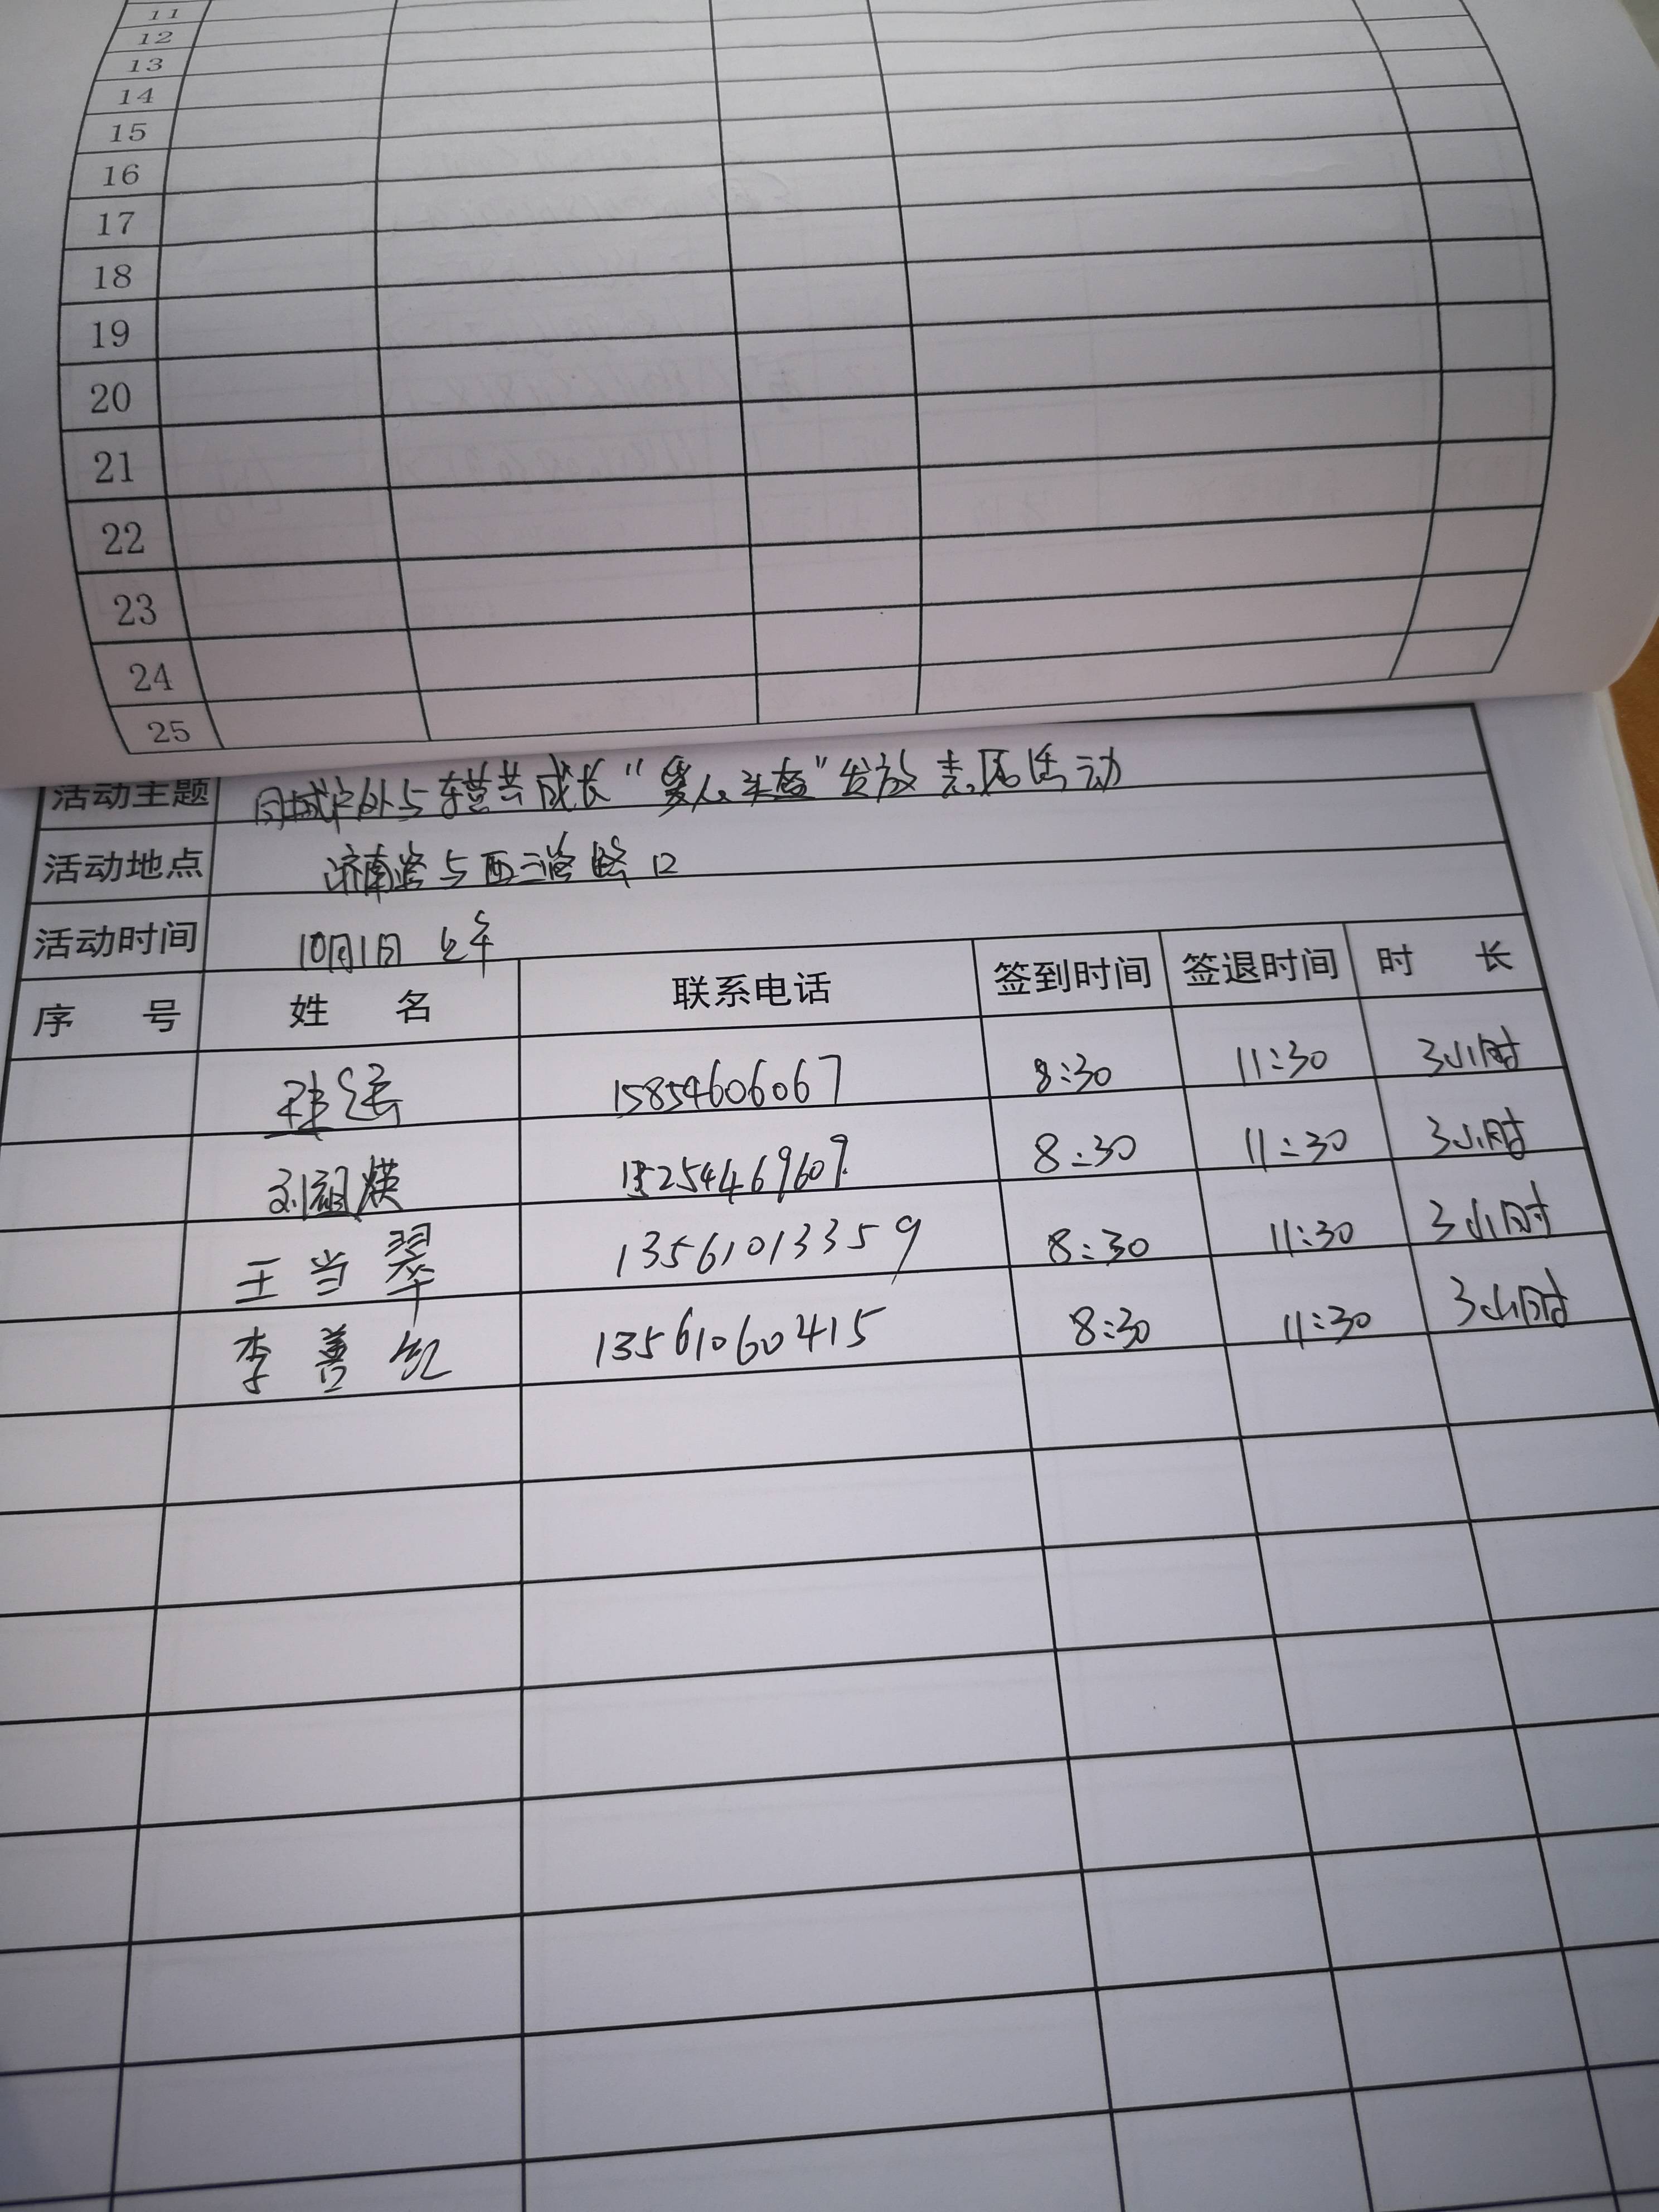 11
12
13
14
15
16
17
18
19
20
21
22
23
24
25
活动主题 同城户外与东营共成长"爱人头盔"发放志愿活动
活动地点 济南路与西二路路口
活动时间 10月1日 上午
序 号 姓 名 联系电话 签到时间 签退时间 时 长
15854606067 8:30 11:30 3小时
刘 15254469609 8:30 11:30 3小时
王当翠 13561013359 8:30 11:30 3小时
李善红 13561060415 8:30 11:30 3小时